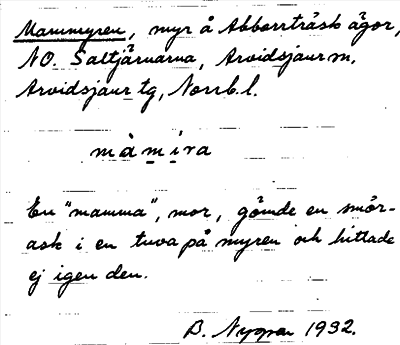 Mammyren, myr å Abborrträsk ägor,
NO. Saltjärnarna, Arvidsjaur sn,
Arvidsjaur tg, Norrb. l.
màmira
En "mamma", mor, gömde en smör-
ask i en tuva på myren och hittade
ej igen den.
B. Nygren 1932.